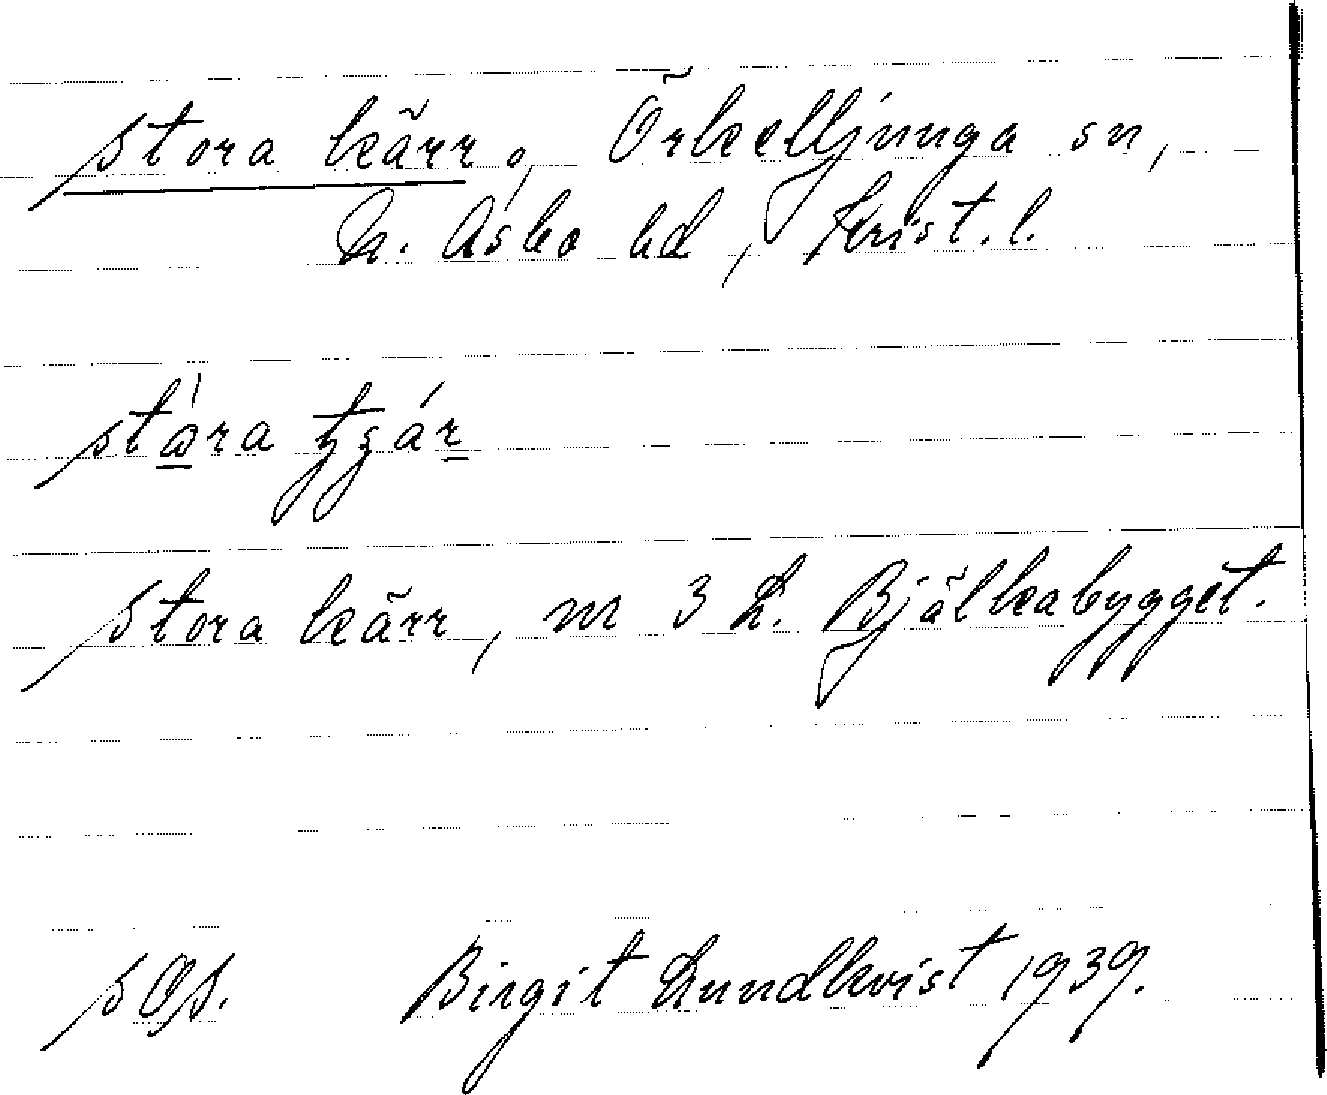 stora kärr, Örkelljunga sn,
N. Åsbo hd, Krist. l.
Stora kärr, m 3 L. Bjälkabygget.
Birgit Lundkvist 1939.